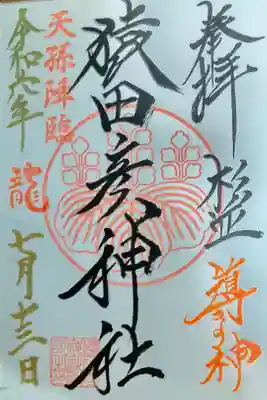 奉拝
杉並
導きの神
猿田彦神社
天孫降臨
龍
令和六年
七月十三日